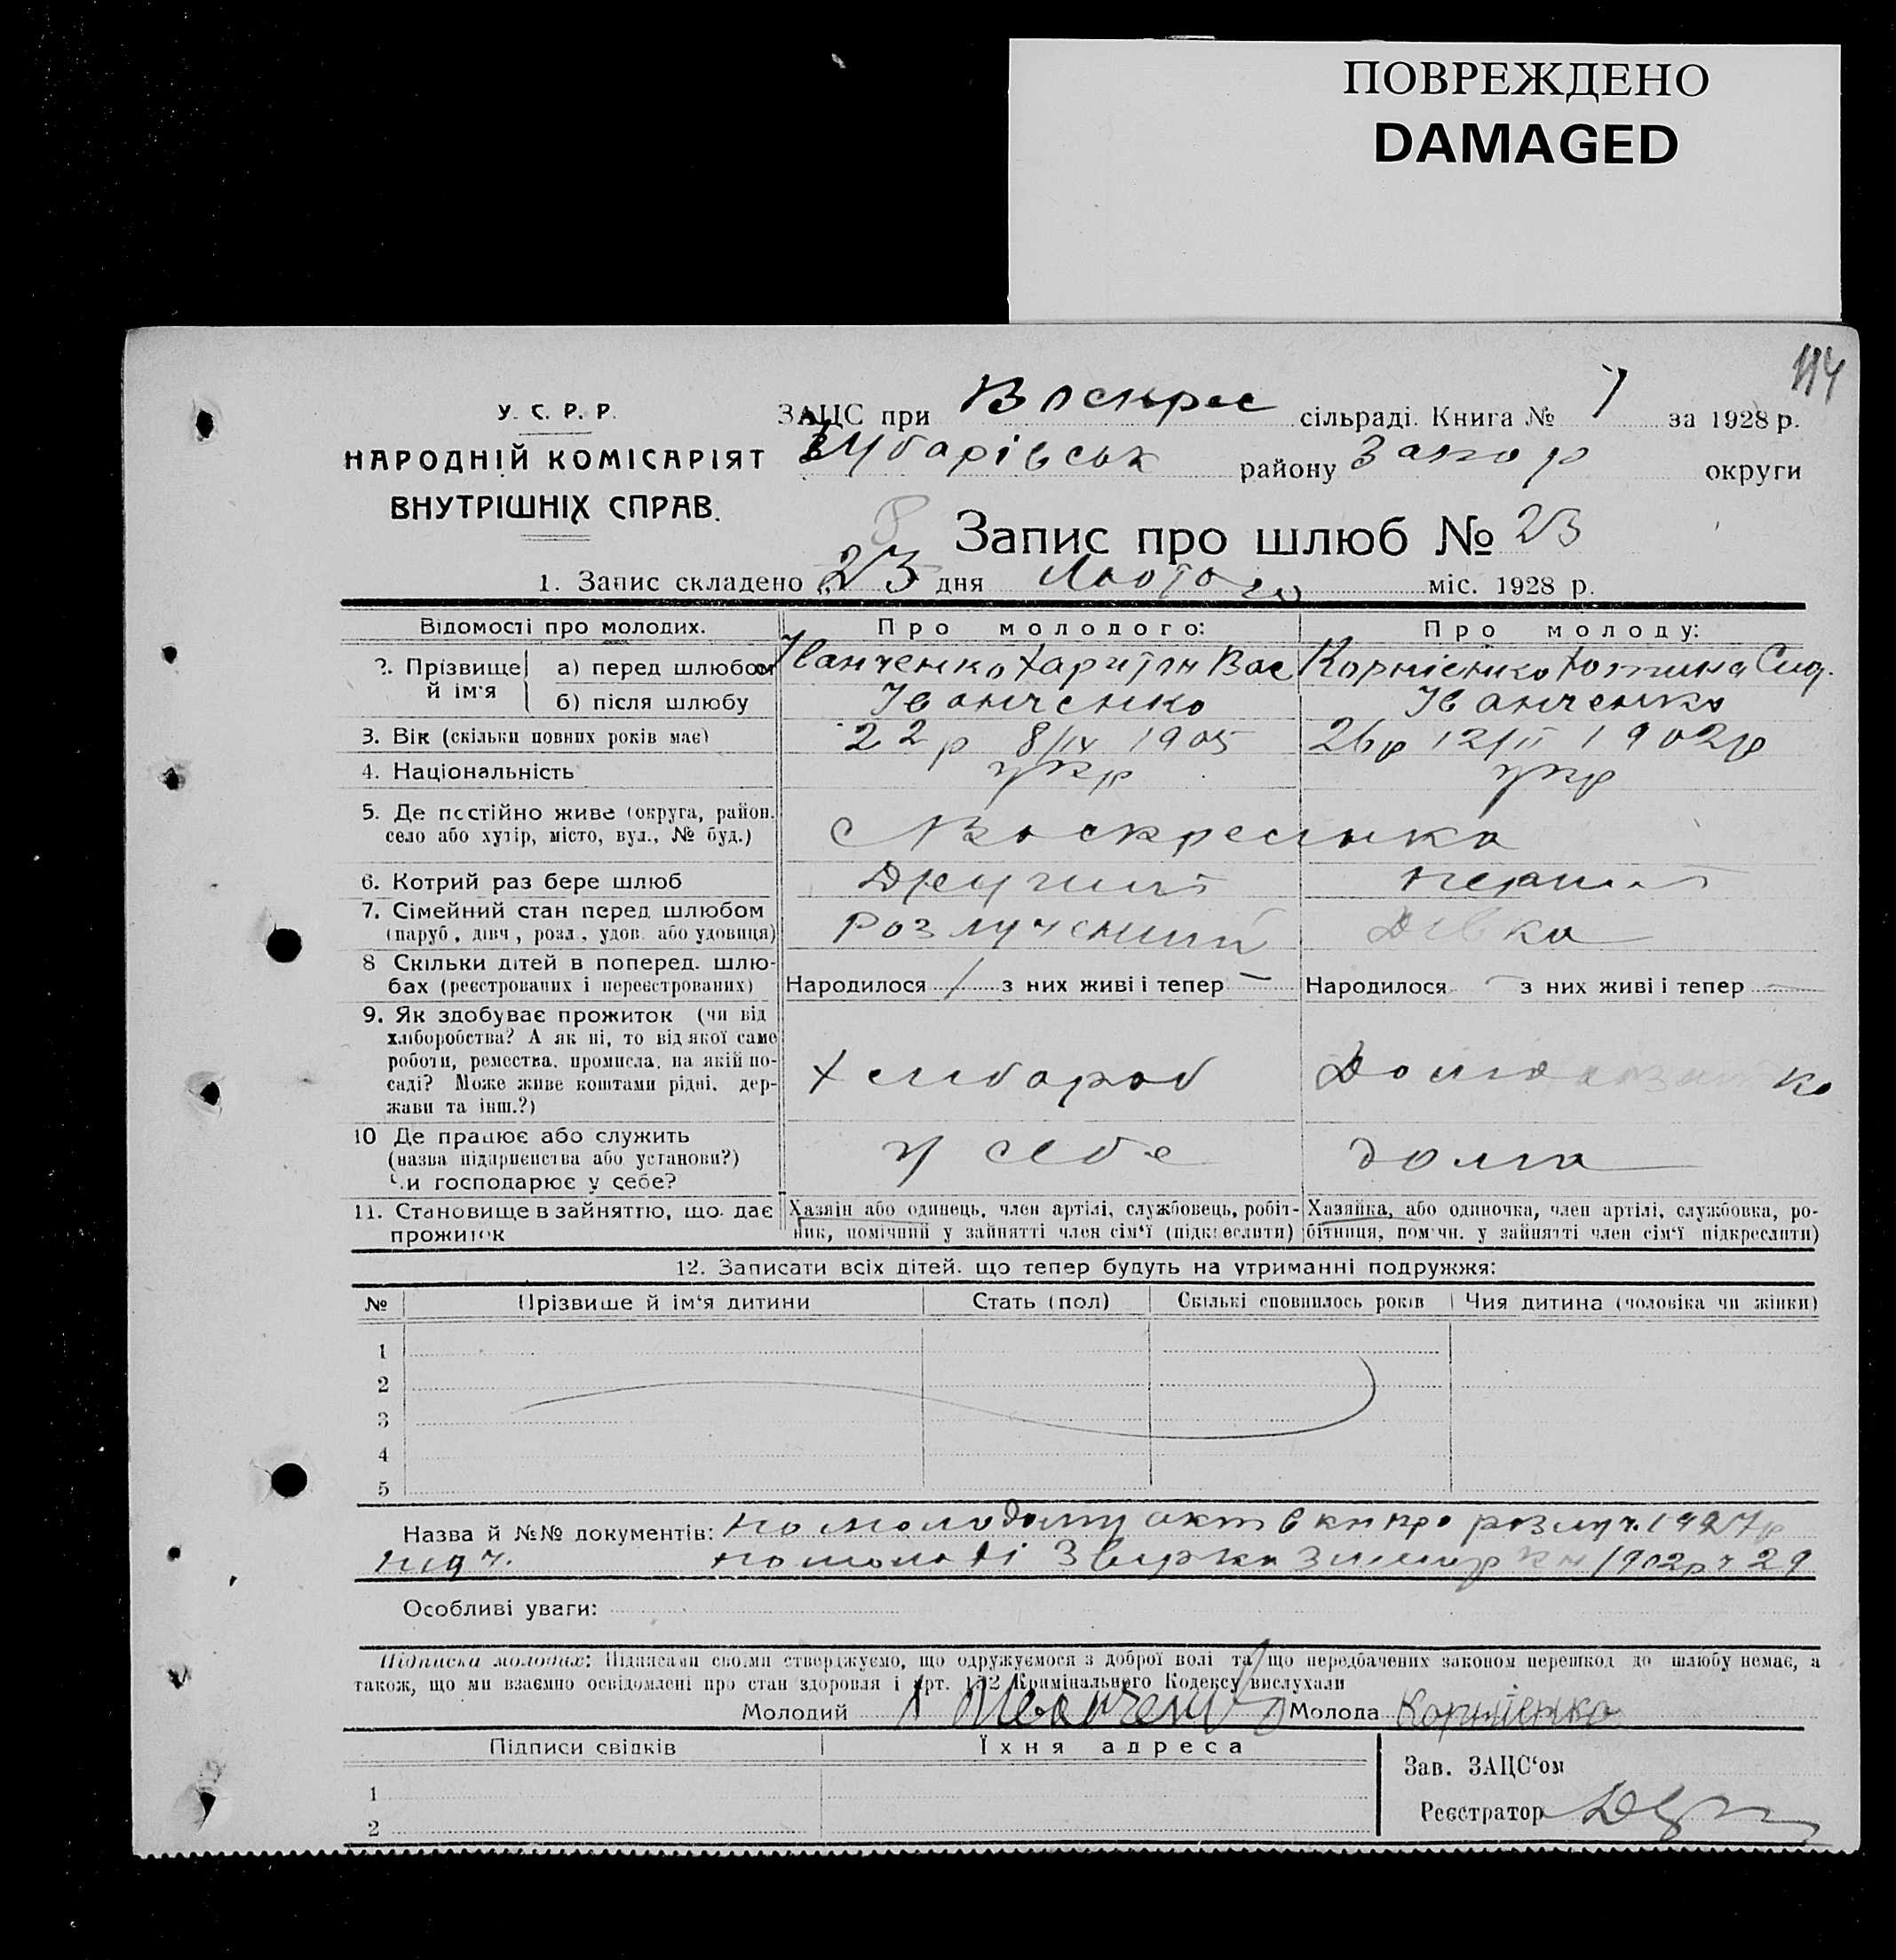 ПОВРЕЖДЕНО
DAMAGED
114
У. С. Р. Р.
НАРОДНІЙ КОМІСАРІЯТ
ВНУТРІШНІХ СПРАВ.
ЗАЦС при Воскрес сільраді. Книга № 1 за 1928 р.
Чубарівськ району Запор округи
Запис про шлюб № 23
1. Запис складено „23 дня Лютого міс. 1928 р.
Відомості про молодих. Про молодого: Про молоду:
2. Прізвище й ім'я а) перед шлюбом Іванченко Харитон Вас Корнієнко Юстина Сид.
б) після шлюбу Іванченко Іванченко
3. Вік (скільки повних років має) 22 р 8/IV 1905 26р 12/II 1902р
4. Національність укр укр
5. Де постійно живе (округа, район,
село або хутір, місто, вул., № буд.) с Воскресенка
6. Котрий раз бере шлюб Другий перший
7. Сімейний стан перед шлюбом
(паруб., дівч., розл., удов. або удовиця) Розлучений Дівка
8 Скільки дітей в поперед. шлю-
бах (реєстрованих і нереєстрованих) Народилося / з них живі і тепер — Народилося — з них живі і тепер —
9. Як здобуває прожиток (чи від
хліборобства? А як ні, то від якої саме
роботи, ремества, промисла, на якій по-
саді? Може живе коштами рідні, дер-
жави та інш.?) Хлибороб
10 Де працює або служить
(назва підприємства або установи?)
Чи господарює у себе? у себе дома
11. Становище в зайняттю, що дає
прожиток
Хазяїн або одинець, член артілі, службовець, робіт-
ник, помічний у зайнятті член сім'ї (підкреслити)
Хазяйка, або одиночка, член артілі, службовка, ро-
бітниця, помічн. у зайнятті член сім'ї підкреслити)
12. Записати всіх дітей, що тепер будуть на утриманні подружжя:
№ Прізвище й ім'я дитини Стать (пол) Скількі сповнилось років Чия дитина (чоловіка чи жінки)
1
2
3
4
5
Назва й №№ документів: на молодому акт в кн про розлуч. 1927р
на молоді 1902р ч 29
Особливі уваги:
Підписи молодих: Підписами своїми стверджуємо, що одружуємося з доброї волі та що передбачених законом перешкод до шлюбу немає, а
також, що ми взаємно освідомлені про стан здоровля і арт. 152 Кримінального Кодексу вислухали
Молодий Іванченко Молода Корнієнко
Підписи свідків Їхня адреса
Зав. ЗАЦС'ом
1
Реєстратор
2